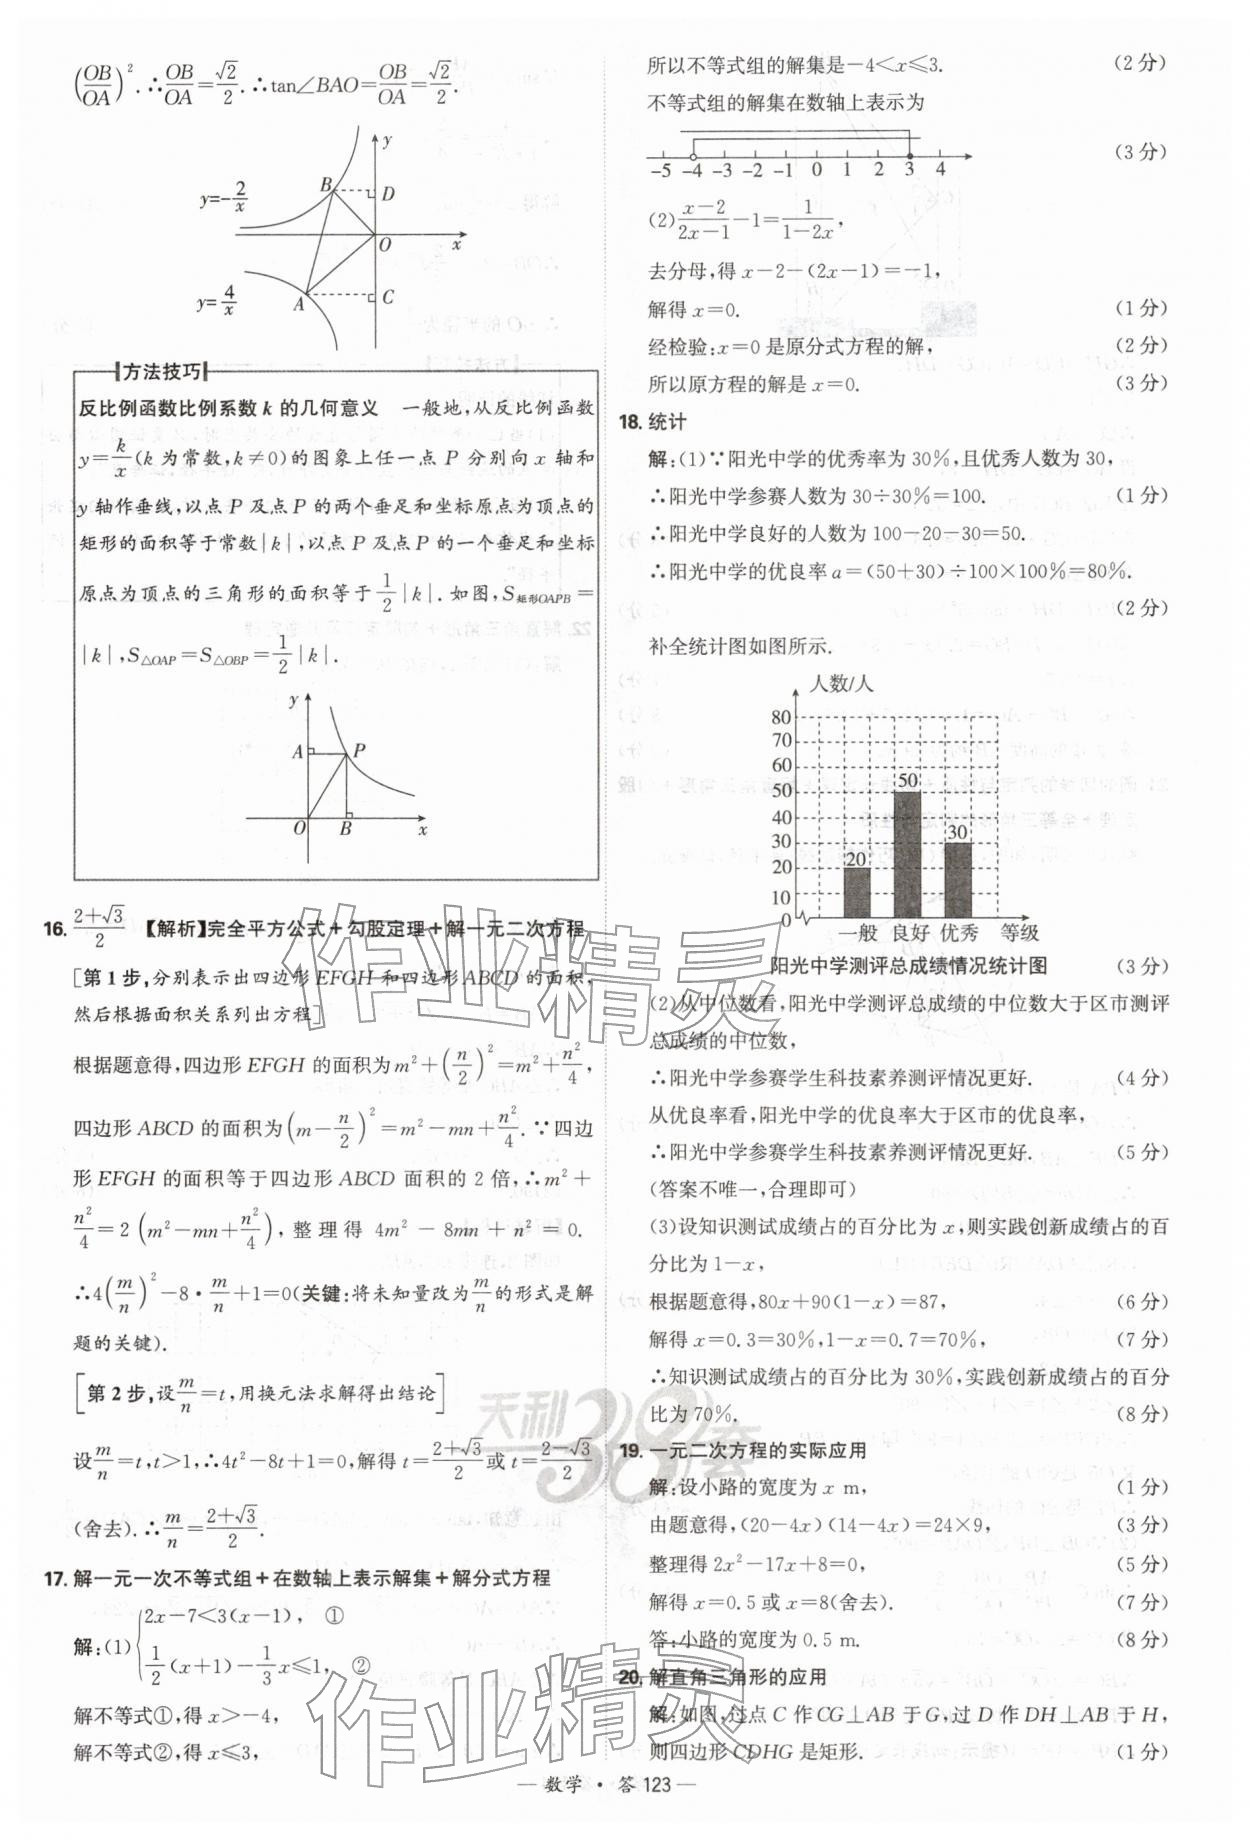 (OB/OA)². ∴OB/OA=√2/2. ∴tan∠BAO=OB/OA=√2/2.
y
y=-2/x
B
D
O
x
y=4/x
A
C
方法技巧
反比例函数比例系数 k 的几何意义 一般地,从反比例函数
y=k/x(k 为常数,k≠0)的图象上任一点 P 分别向 x 轴和
y 轴作垂线,以点 P 及点 P 的两个垂足和坐标原点为顶点的
矩形的面积等于常数|k|,以点 P 及点 P 的一个垂足和坐标
原点为顶点的三角形的面积等于1/2|k|. 如图,S矩形OAPB=
|k|,S△OAP=S△OBP=1/2|k|.
y
A
P
O
B
x
16. (2+√3)/2 【解析】完全平方公式+勾股定理+解一元二次方程
[第1步,分别表示出四边形 EFGH 和四边形 ABCD 的面积,
然后根据面积关系列出方程]
根据题意得,四边形 EFGH 的面积为 m²+(n/2)²=m²+n²/4,
四边形 ABCD 的面积为(m-n/2)²=m²-mn+n²/4. ∵四边
形 EFGH 的面积等于四边形 ABCD 面积的 2 倍,∴m²+
n²/4=2(m²-mn+n²/4), 整理得 4m²-8mn+n²=0.
∴4(m/n)²-8·m/n+1=0(关键:将未知量改为m/n的形式是解
题的关键).
[第2步,设m/n=t,用换元法求解得出结论]
设m/n=t,t>1,∴4t²-8t+1=0,解得 t=(2+√3)/2或 t=(2-√3)/2
(舍去). ∴m/n=(2+√3)/2.
17. 解一元一次不等式组+在数轴上表示解集+解分式方程
解:(1){2x-7<3(x-1), ①
1/2(x+1)-1/3x≤1, ②
解不等式①,得 x>-4,
解不等式②,得 x≤3,
所以不等式组的解集是-4<x≤3. (2分)
不等式组的解集在数轴上表示为
-5 -4 -3 -2 -1 0 1 2 3 4 (3分)
(2)(x-2)/(2x-1)-1=1/(1-2x),
去分母,得 x-2-(2x-1)=-1,
解得 x=0. (1分)
经检验:x=0 是原分式方程的解, (2分)
所以原方程的解是 x=0. (3分)
18. 统计
解:(1)∵阳光中学的优秀率为30%,且优秀人数为30,
∴阳光中学参赛人数为 30÷30%=100. (1分)
∴阳光中学良好的人数为 100-20-30=50.
∴阳光中学的优良率 a=(50+30)÷100×100%=80%.
(2分)
补全统计图如图所示.
人数/人
80
70
60
50
40
30
20
10
0
20
50
30
一般 良好 优秀 等级
阳光中学测评总成绩情况统计图 (3分)
(2)从中位数看,阳光中学测评总成绩的中位数大于区市测评
总成绩的中位数,
∴阳光中学参赛学生科技素养测评情况更好. (4分)
从优良率看,阳光中学的优良率大于区市的优良率,
∴阳光中学参赛学生科技素养测评情况更好. (5分)
(答案不唯一,合理即可)
(3)设知识测试成绩占的百分比为 x,则实践创新成绩占的百
分比为 1-x,
根据题意得,80x+90(1-x)=87, (6分)
解得 x=0.3=30%,1-x=0.7=70%, (7分)
∴知识测试成绩占的百分比为 30%,实践创新成绩占的百分
比为 70%. (8分)
19. 一元二次方程的实际应用
解:设小路的宽度为 x m, (1分)
由题意得,(20-4x)(14-4x)=24×9, (3分)
整理得 2x²-17x+8=0, (5分)
解得 x=0.5 或 x=8(舍去). (7分)
答:小路的宽度为 0.5 m. (8分)
20. 解直角三角形的应用
解:如图,过点 C 作 CG⊥AB 于 G,过 D 作 DH⊥AB 于 H,
则四边形 CDHG 是矩形. (1分)
作业精灵
天利38套
作业精灵
— 数学·答123 —